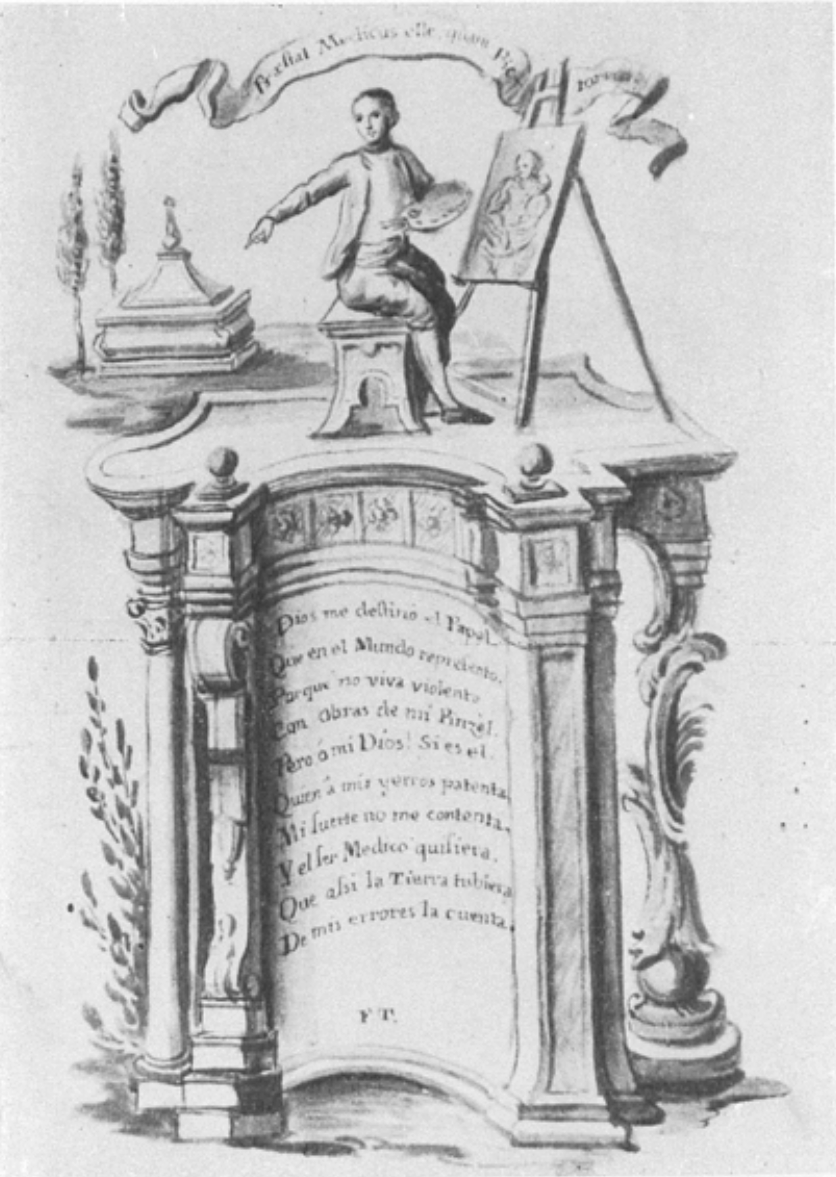 Præstat Medicus esse, quam Pic
Dios me destinò el Papel
Que en el Mundo represento.
Porque no viva violento
Con Obras de mi Pinzel.
Pero ó mi Dios! Si es el.
Quien à mis yerros patenta.
Mi suerte no me contenta.
Y el ser Medico quisiera.
Que assi la Tierra tubiera
De mis errores la cuenta.
F T.